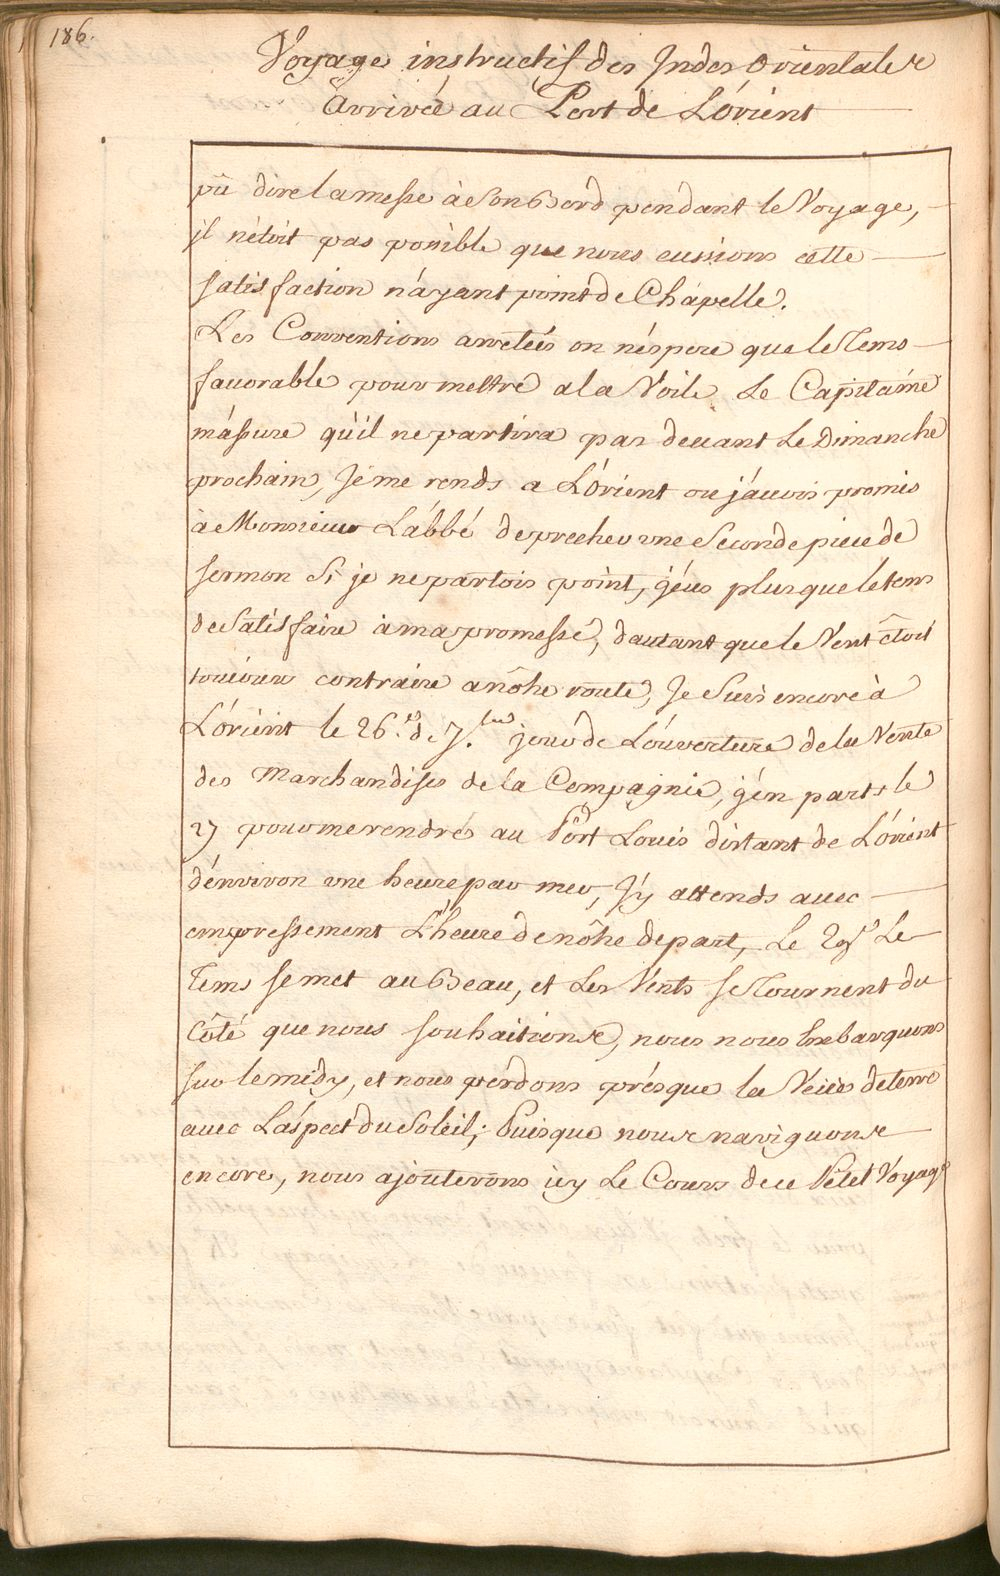 186.
Voyage instructif des Indes Orientales
Arrivée au Port de L'órient
pû dire la messe à Son Bord pendant le Voyage,
jl nétoit pas possible que nous eussions cette
satisfaction n'áyant point de Chápelle.
Les Conventions arretées on n'éspere que le Tems
fauorable pour mettre a la Voile Le Capitáine
m'ássure qu'il ne partira pas deuant Le Dimanche
prochain, Je me rends a L'Órient ou j'áuois promis
à Monsieur L'ábbé de precher une Seconde piece de
sermon Si je ne partois point, j'éus plus que le tems
de Satisfaire à ma promesse, dautant que le Vent étoit
toujours contraire a nôtre route, Je Suis encore à
L'órient le 26.e de 7.bre jour de L'ouverture de la Vente
des Marchandises de la Compagnie, j'én parts le
27 pour me rendre au Pórt Louis distant de L'órient
d'énviron une heure par mer, J'y attends auec
empressement L'heure de nôtre depart, Le 29e Le
Tems se met au Beau, et Les Vents se Tournent du
Côté que nous souhaitions, nous nous Embarquons
sur le midy, et nous pérdons présque la Veüe de terre
auec L'áspect du Soleil; Puisque nous naviguons
encore, nous ajouterons icy Le Cours de ce Petit Voyage